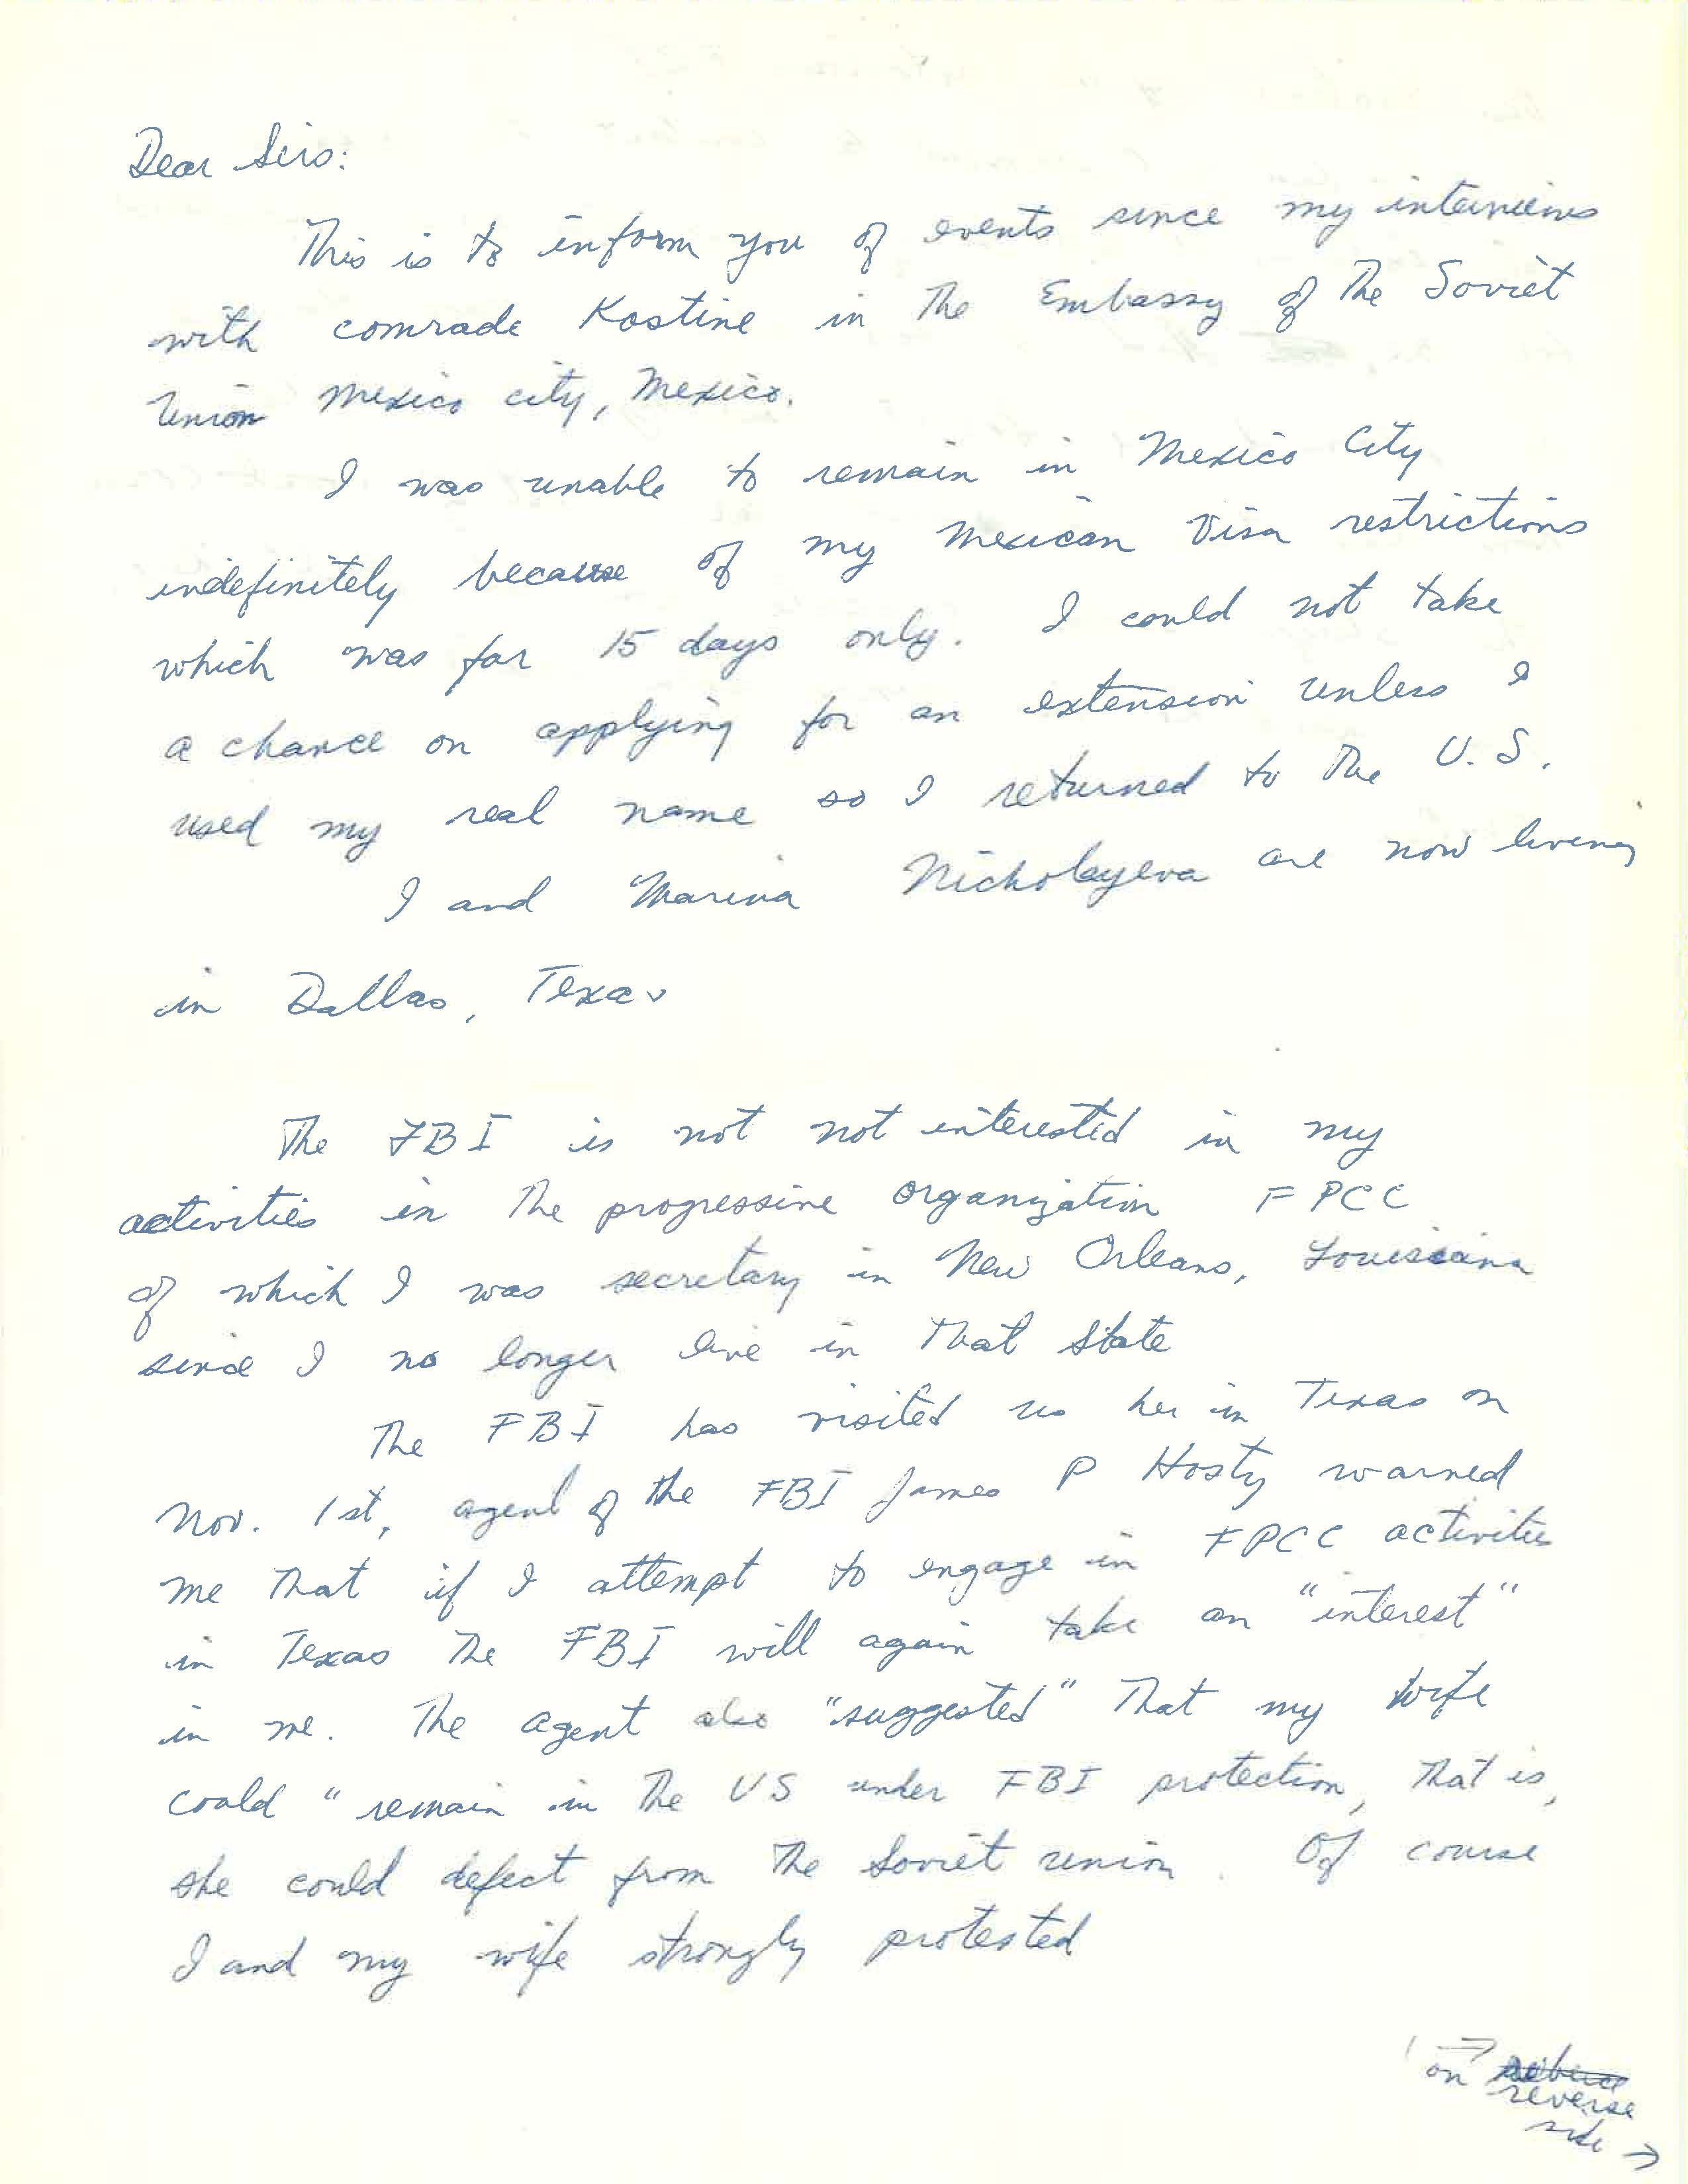 Dear Sirs:
This is to inform you of events since my interviews
with comrade Kostine in the Embassy of the Soviet
Union Mexico city, Mexico.
I was unable to remain in Mexico City
indefinitely because of my Mexican Visa restrictions
which was for 15 days only. I could not take
a chance on applying for an extension unless I
used my real name so I returned to the U.S.
I and Marina Nicholayeva are now living
in Dallas, Texas
The FBI is not not interested in my
activities in the progressive organization FPCC
of which I was secretary in New Orleans, Louisiana
since I no longer live in that State
The FBI has visited us her in Texas on
Nov. 1st, agent of the FBI James P Hosty warned
me that if I attempt to engage in FPCC activities
in Texas the FBI will again take an "interest"
in me. The agent also "suggested" that my wife
could "remain in the US under FBI protection, that is,
she could defect from the Soviet union. Of course
I and my wife strongly protested
on
reverse
side →